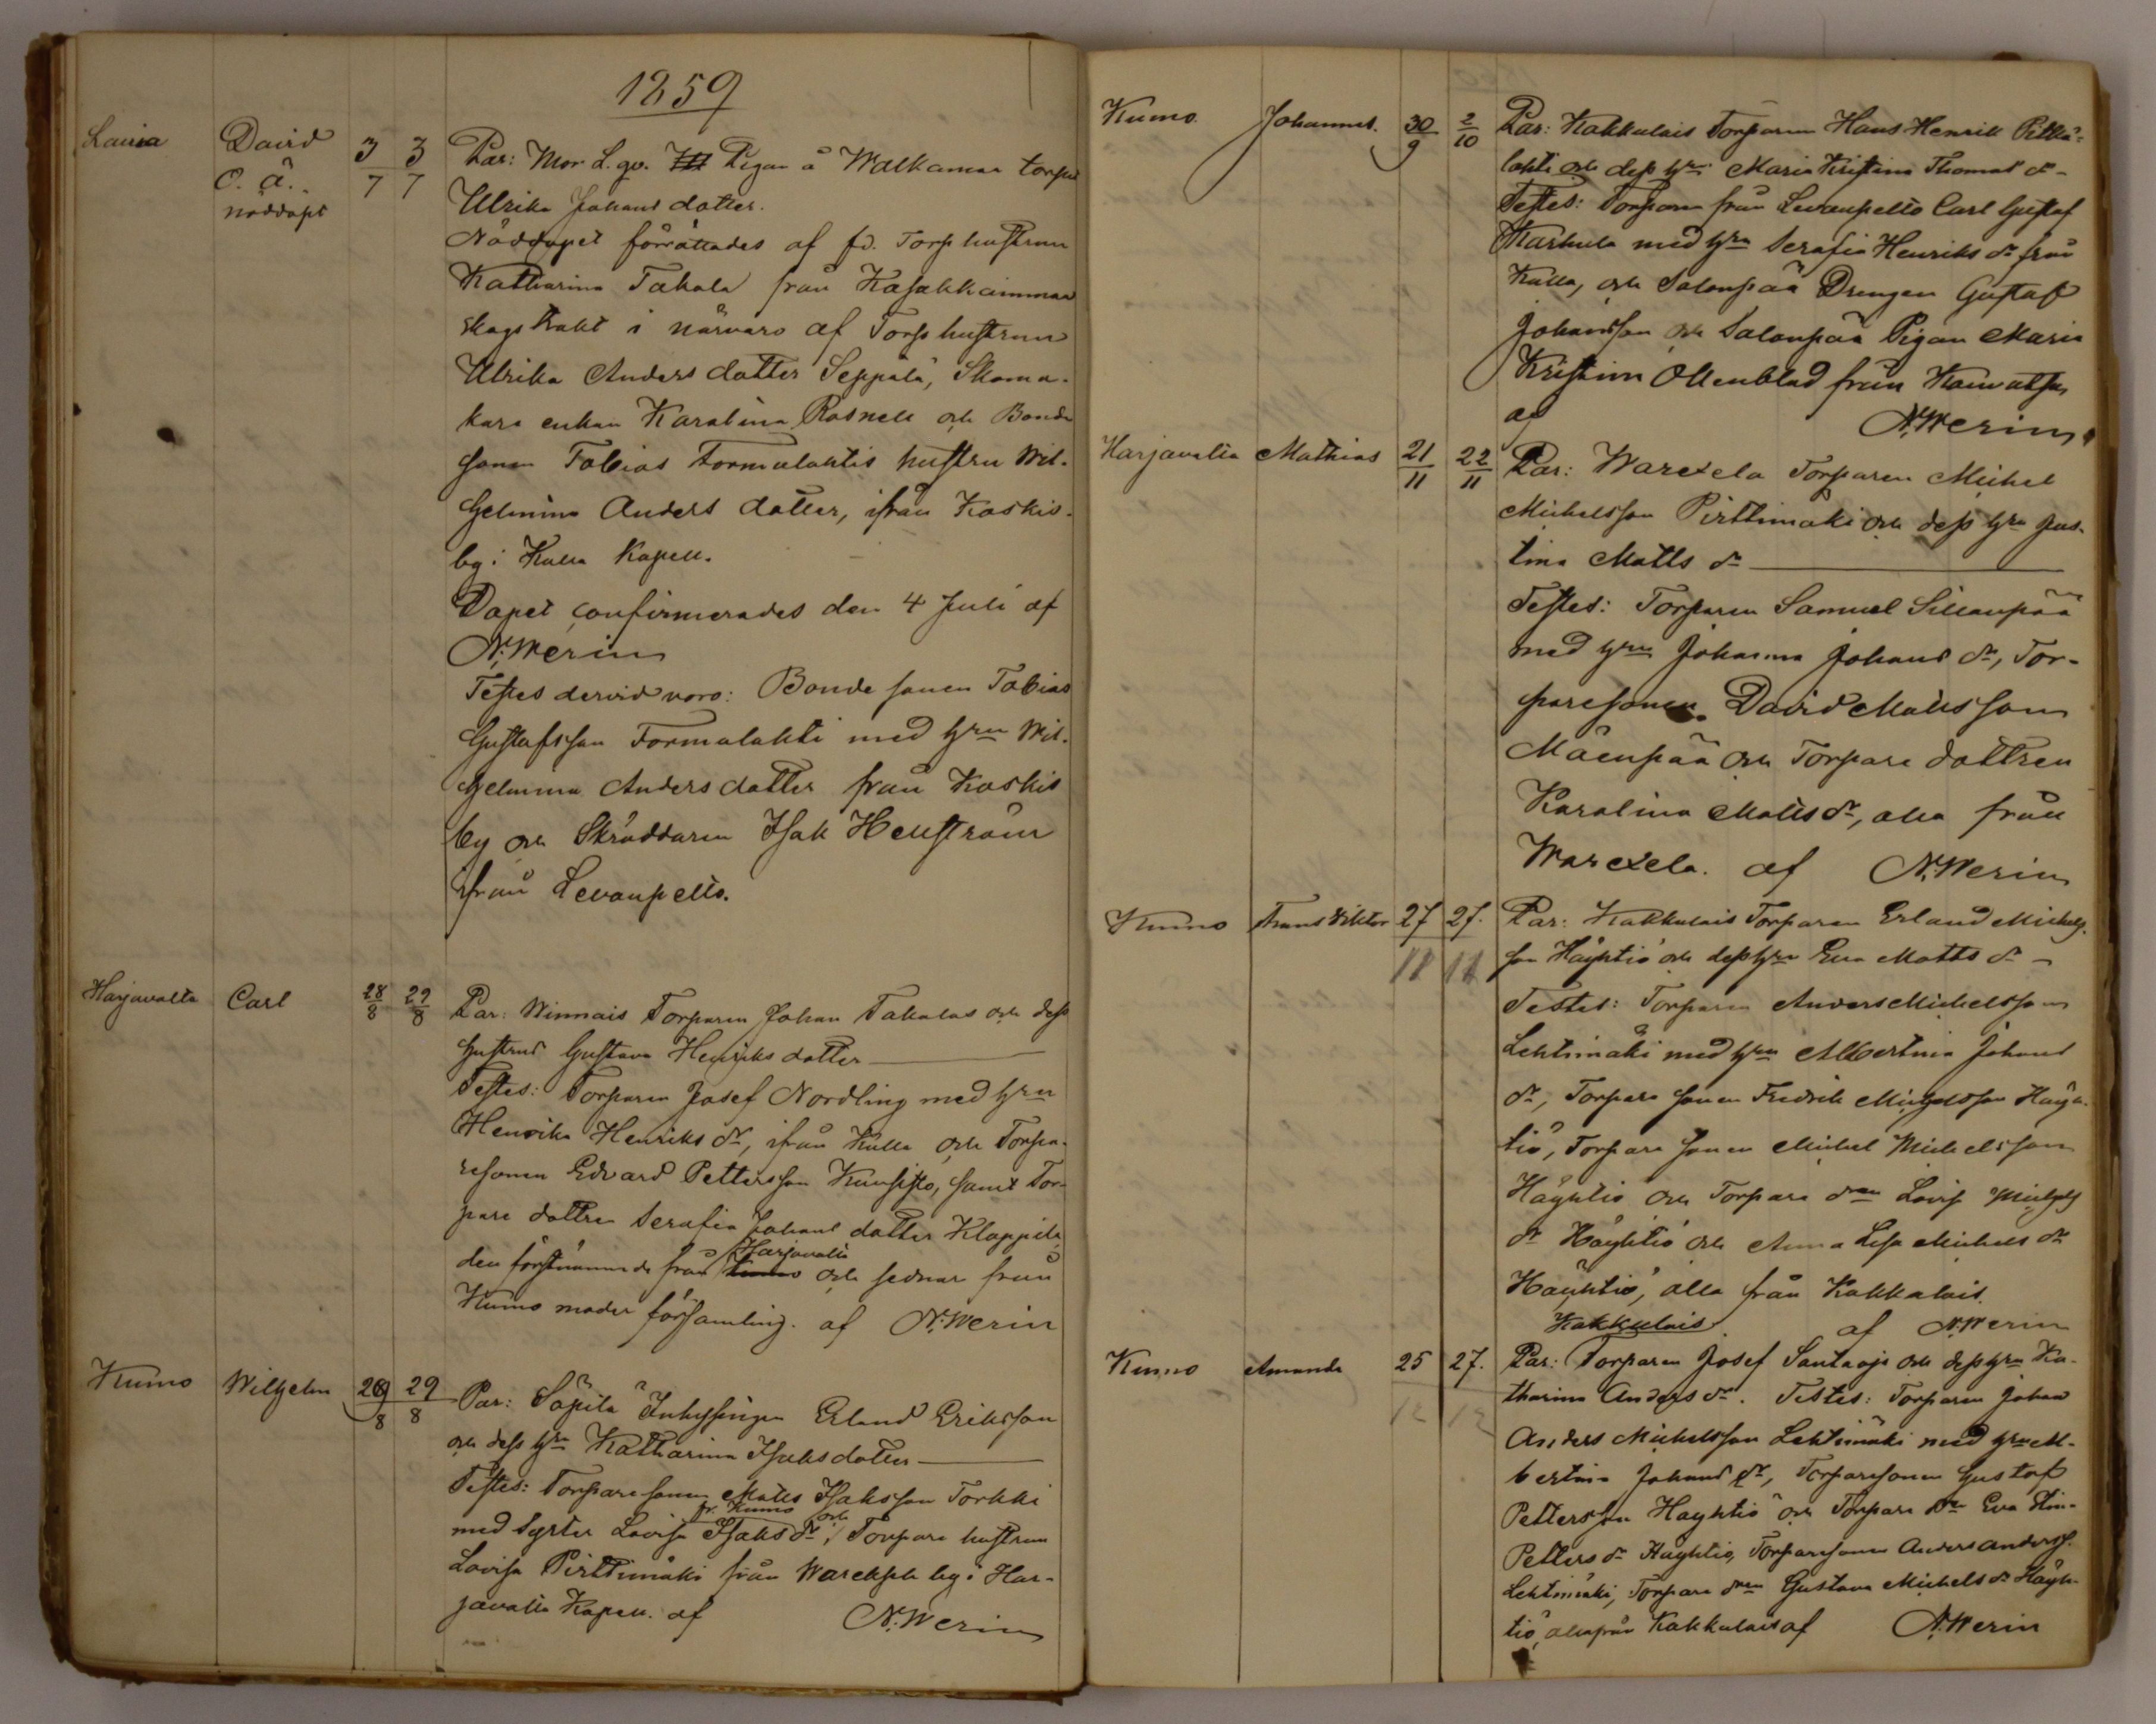 1859
Lavia David O. Ä. nöddöpt 3/7 3/7 Par: Mor L. qv. Pigan å Walkamaa torp
Ulrika Johans dotter.
Nöddopet förrättades af fd. Torp hustrun
Katharina Takala från Kasakkaimmaa
skogstrakt i närvaro af Torp hustrun
Ulrika Anders dotter Seppälä, Skoma-
kare enkan Karolina Rosnell och Bonde
sonen Tobias Formulahtis hustru Wil-
helmina Anders dotter, ifrån Koskis-
by i Kulla Kapell.
Dopet confirmerades den 4 Juli af
N. Merin
Testes dervid voro: Bonde sonen Tobias
Gustafsson Formalahti med hru Wil-
helmina Anders dotter från Koskis
by och Skräddaren Isak Hellström
ifrån Levanpelto.
Harjavalta Carl 28/8 29/8 Par: Winnais Torparen Johan Takalas och dess
hustrus Gustava Henriks dotter
Testes: Torparen Josef Nordling med hru
Henrika Henriks dr, ifrån Kulla och Torpa-
resonen Edvard Pettersson Kunsisto, samt Tor-
pare dottren Serafia Johans dotter Klappila
den förstnämnde från Kumo Harjavalta och sednare från
Kumo moder församling. af N. Merin
Kumo Wilhelm 28/8 29/8 Par: Säpilä Inhysingen Erland Eriksson
och dess hru Katharina Isaks dotter
Testes: Torpare sonen Matts Isaksson Torkki
fr. Kumo och
med syster Lovisa Isaks dr, Torpare hustrun
Lovisa Pirttimäki från Wareksela by i Har-
javalta Kapell. af N. Merin
Kumo Johannes. 30/9 2/10 Par: Kakkulais Torparen Hans Henrik Pitkä-
lahti och dess hru Maria Kristina Thomas dr
Testes: Torparen från Levanpelto Carl Gustaf
Markula med hru Serafia Henriks dr från
Kulla, och Salonpää Drengen Gustaf
Johansson och Salonpää Pigan Maria
Kristina Ollenblad från Kauvatsa
af N. Merin
Harjavalta Mathias 21/11 22/11 Par: Warexela Torparen Michel
Michelsson Pirttimäki och dess hru Jus-
tina Matts dr
Testes: Torparen Samuel Sillanpää
med hru Johanna Johans dr, Tor-
paresonen David Mattsson
Mäenpää och Torpare dottren
Karolina Matts dr, alla från
Warexela. af N. Merin
Kumo Frans Viktor 27/11 27./11 Par: Kakkulais Torparen Erland Michels-
son Häyhtiö och dess hru Eva Matts dr
Testes: Torparen Anders Michelsson
Lehtimäki med hru Albertina Johans
dr, Torpare sonen Fredrik Michelsson Häyh-
tiö, Torpare sonen Michel Michelsson
Häyhtiö och Torpare dren Lovisa Michels
dr Häyhtiö och Anna Lisa Michels dr
Häyhtiö, alla från Kakkulais.
af N. Merin
Kakkulais
Kumo Amanda 25/12 27./12 Par: Torparen Josef Santaoja och dess hru Ka-
tharina Anders dr. Testes: Torparen Johan
Anders Michelsson Lehtimäki med hru Al-
bertina Johans dr, Torparesonen Gustaf
Pettersson Häyhtiö och Torpare dr Eva Stina
Petters dr Häyhtiö, Torparesonen Anders Anderss.
Lehtimäki, Torpare dren Gustava Michels dr Häyh-
tiö, alla från Kakkulais af N. Merin